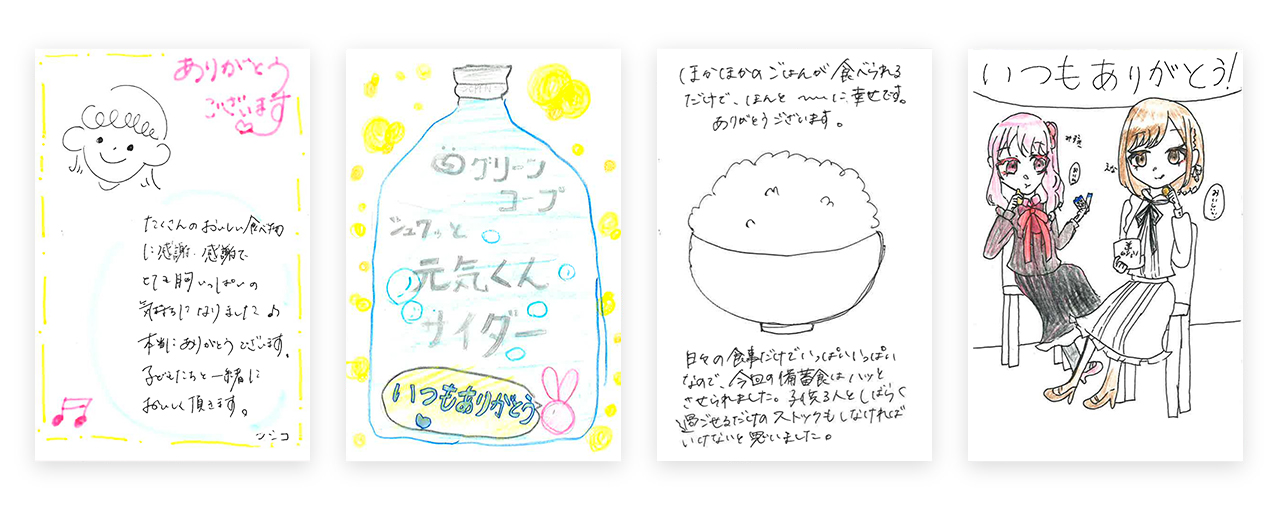 ありがとう
ございます
たくさんのおいしい食べ物
に感謝、感謝で
とても胸いっぱいの
気持ちになりました♪
本当にありがとうございます。
子どもたちと一緒に
おいしく頂きます。
OPEN
グリーン
コープ
ジュワッと
元気くん
サイダー
いつもありがとう
ほかほかのごはんが食べられる
だけで、ほんと〜に幸せです。
ありがとうございます。
日々の食事だけでいっぱいいっぱい
なので、今回の備蓄食はハッと
させられました。子供3人としばらく
過ごせるだけのストックもしなければ
いけないと思いました。
いつもありがとう!
みずき
えな
おいしい!